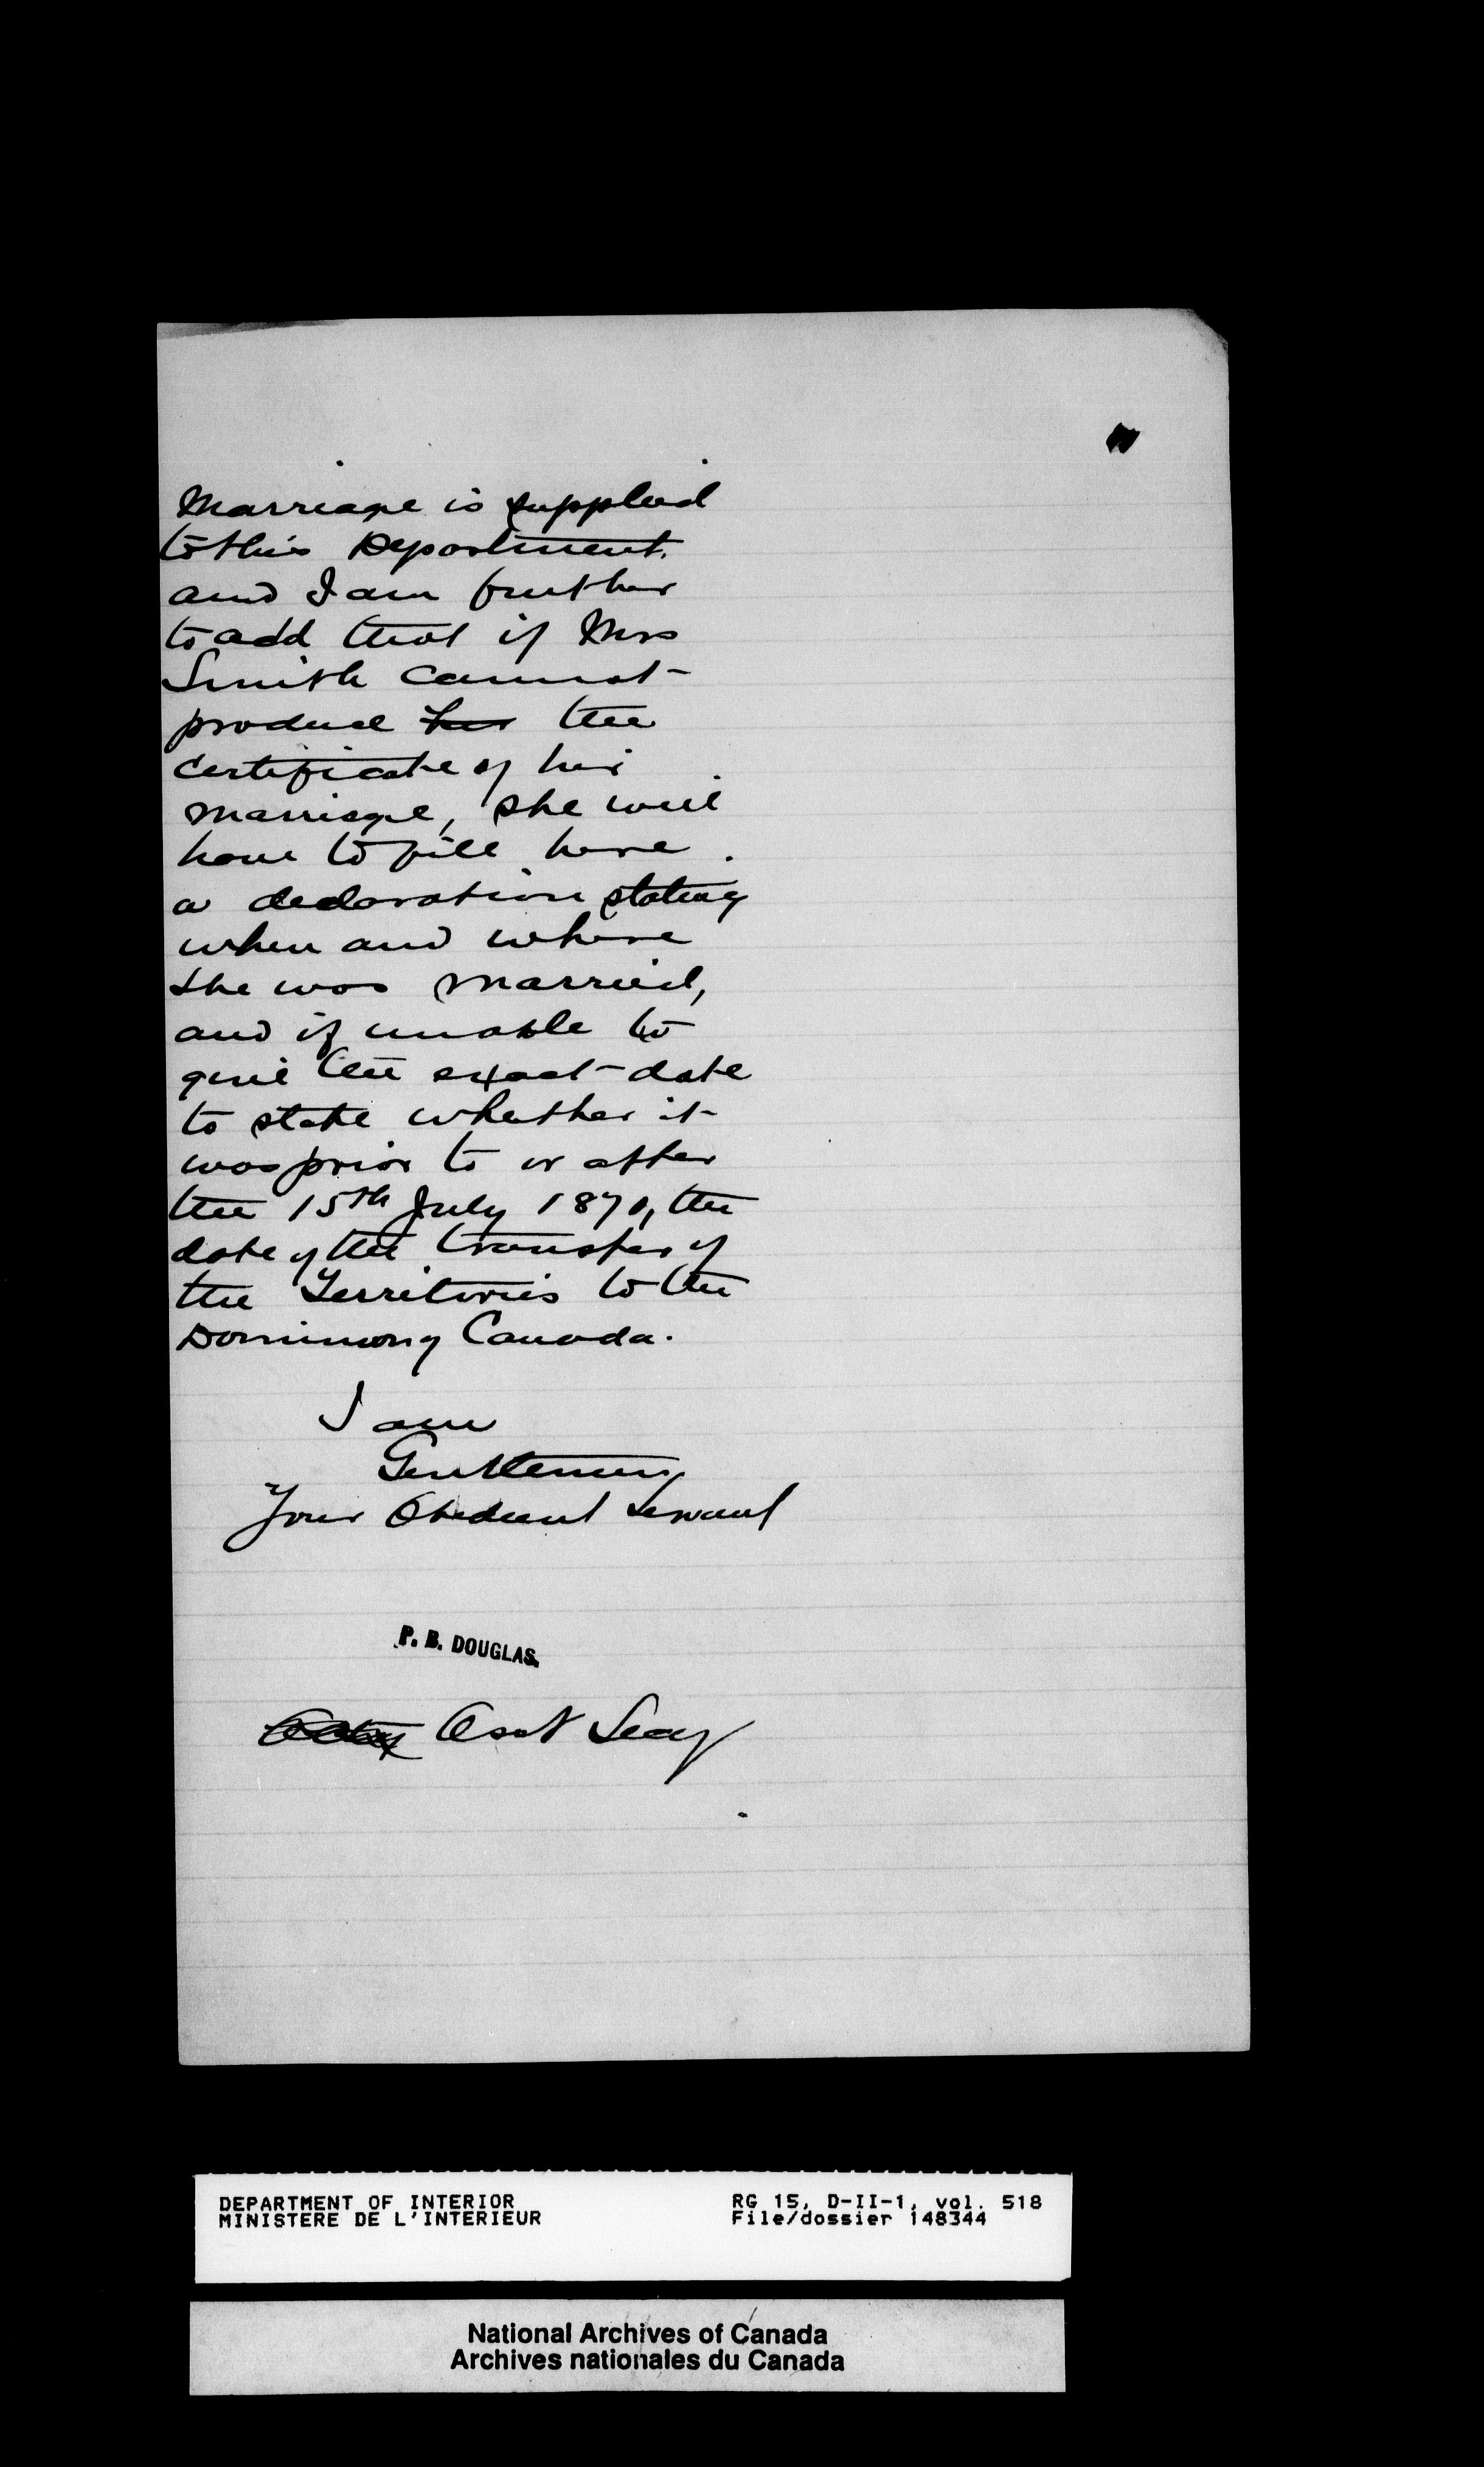 Marriage is supplied
to this Department.
and I am further
to add that if Mrs
Smith cannot
produce her the
certificate of her
marriage, she will
have to file here
a declaration stating
when and where
she was married,
and if unable to
give the exact date
to state whether it
was prior to or after
the 15th July 1870, the
date of the transfer of
the Territories to the
Dominion of Canada.
I am
Gentlemen
Your Obedient Servant
P. B. DOUGLAS.
Asst Secy
DEPARTMENT OF INTERIOR
MINISTERE DE L'INTERIEUR
RG 15, D-II-1, vol. 518
File/dossier 148344
National Archives of Canada
Archives nationales du Canada